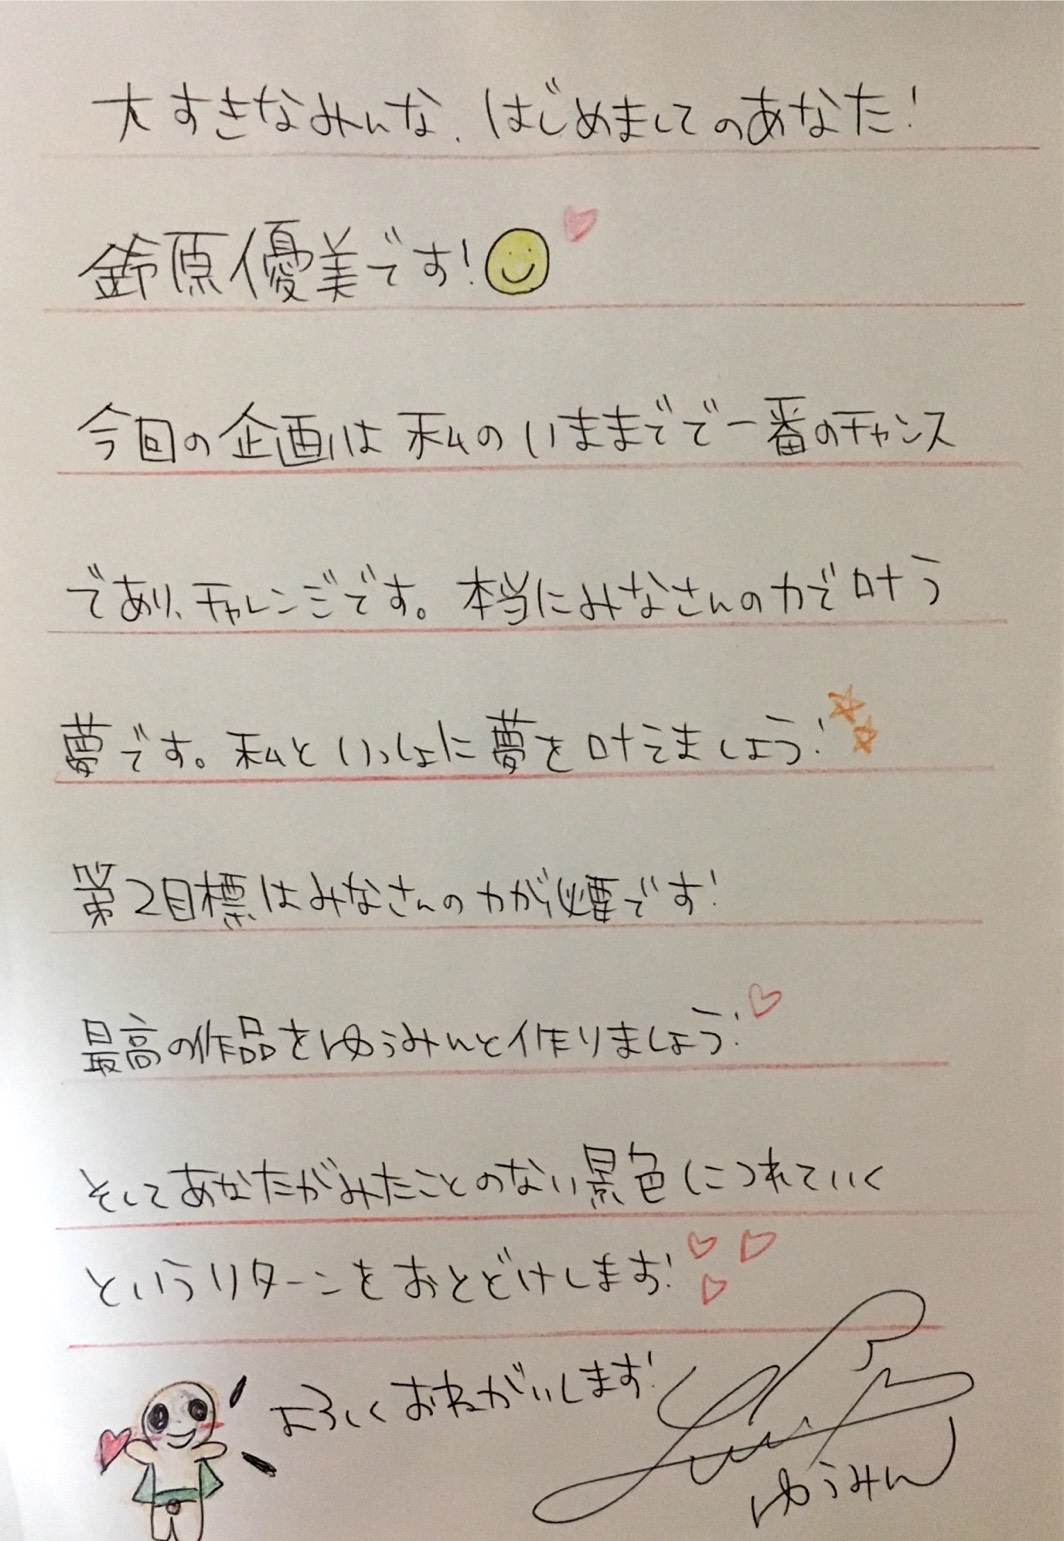 大すきなみんな、はじめましてのあなた!
鈴原優美です!
今回の企画は私のいままでで一番のチャンス
であり、チャレンジです。本当にみなさんの力で叶う
夢です。私といっしょに夢を叶えましょう!
第2目標はみなさんの力が必要です!
最高の作品をゆうみんと作りましょう!
そしてあなたがみたことのない景色につれていく
というリターンをおとどけします!
よろしくおねがいします!
ゆうみん